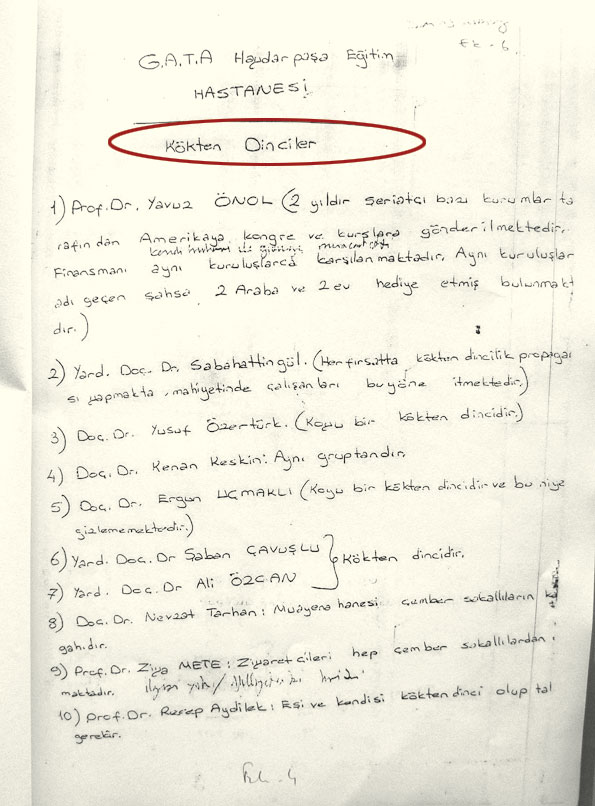 Ek - 6
G.A.T.A Haydarpaşa Eğitim
HASTANESİ
Kökten Dinciler
1) Prof. Dr. Yavuz ÖNOL (2 yıldır şeriatçı bazı kurumlar ta
rafından Amerikaya, kongre ve kurslara gönderilmektedir.
Finansmanı aynı kuruluşlarca karşılanmaktadır. Aynı kuruluşlar
adı geçen şahsa, 2 Araba ve 2 ev hediye etmiş bulunmakt
dır.)
2) Yard. Doç. Dr. Sabahattin gül. (Her fırsatta kökten dincilik propagan
sı yapmakta, mahiyetinde çalışanları bu yöne itmektedir.)
3) Doç. Dr. Yusuf Özertürk. (Koyu bir kökten dincidir.)
4) Doç. Dr. Kenan Keskin: Aynı gruptandır.
5) Doç. Dr. Ergun UÇMAKLI (Koyu bir kökten dincidir ve bu niye
gizlememektedir.)
6) Yard. Doç. Dr Şaban ÇAVUŞLU
Kökten dincidir.
7) Yard. Doç. Dr Ali ÖZCAN
8) Doç. Dr. Nevzat Tarhan: Muayenehanesi çember sakallıların
gahıdır.
9) Prof. Dr. Ziya METE: Ziyaretcileri hep çember sakallılardan
maktadır.
10) Prof. Dr. Recep Aydilek: Eşi ve kendisi kökten dinci olup tal
gerekir.
Ek - 4